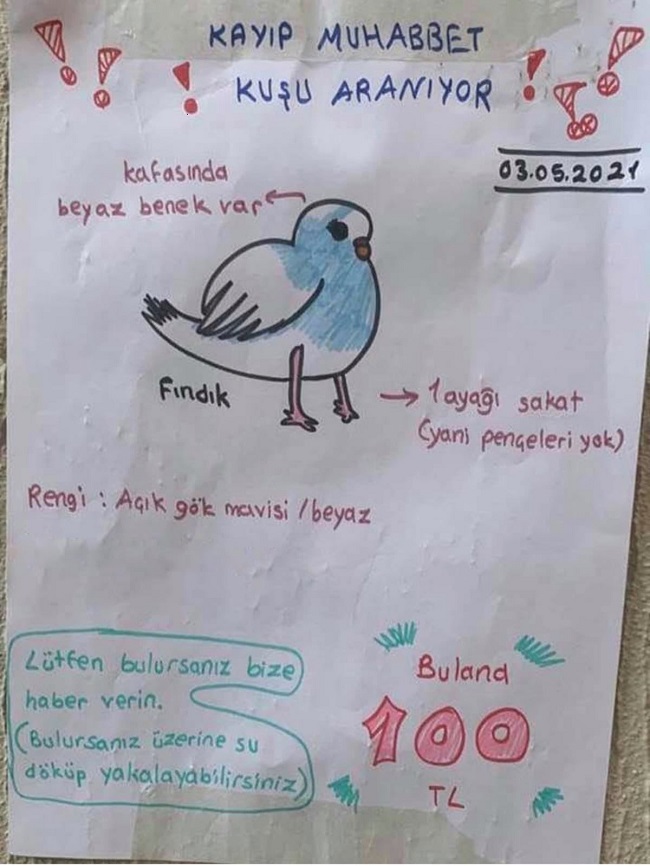 KAYIP MUHABBET
KUŞU ARANIYOR
03.05.2021
kafasında
beyaz benek var
Fındık
1 ayağı sakat
(yani pençeleri yok)
Rengi : Açık gök mavisi / beyaz
Lütfen bulursanız bize
haber verin.
(Bulursanız üzerine su
döküp yakalayabilirsiniz)
Buland
100
TL